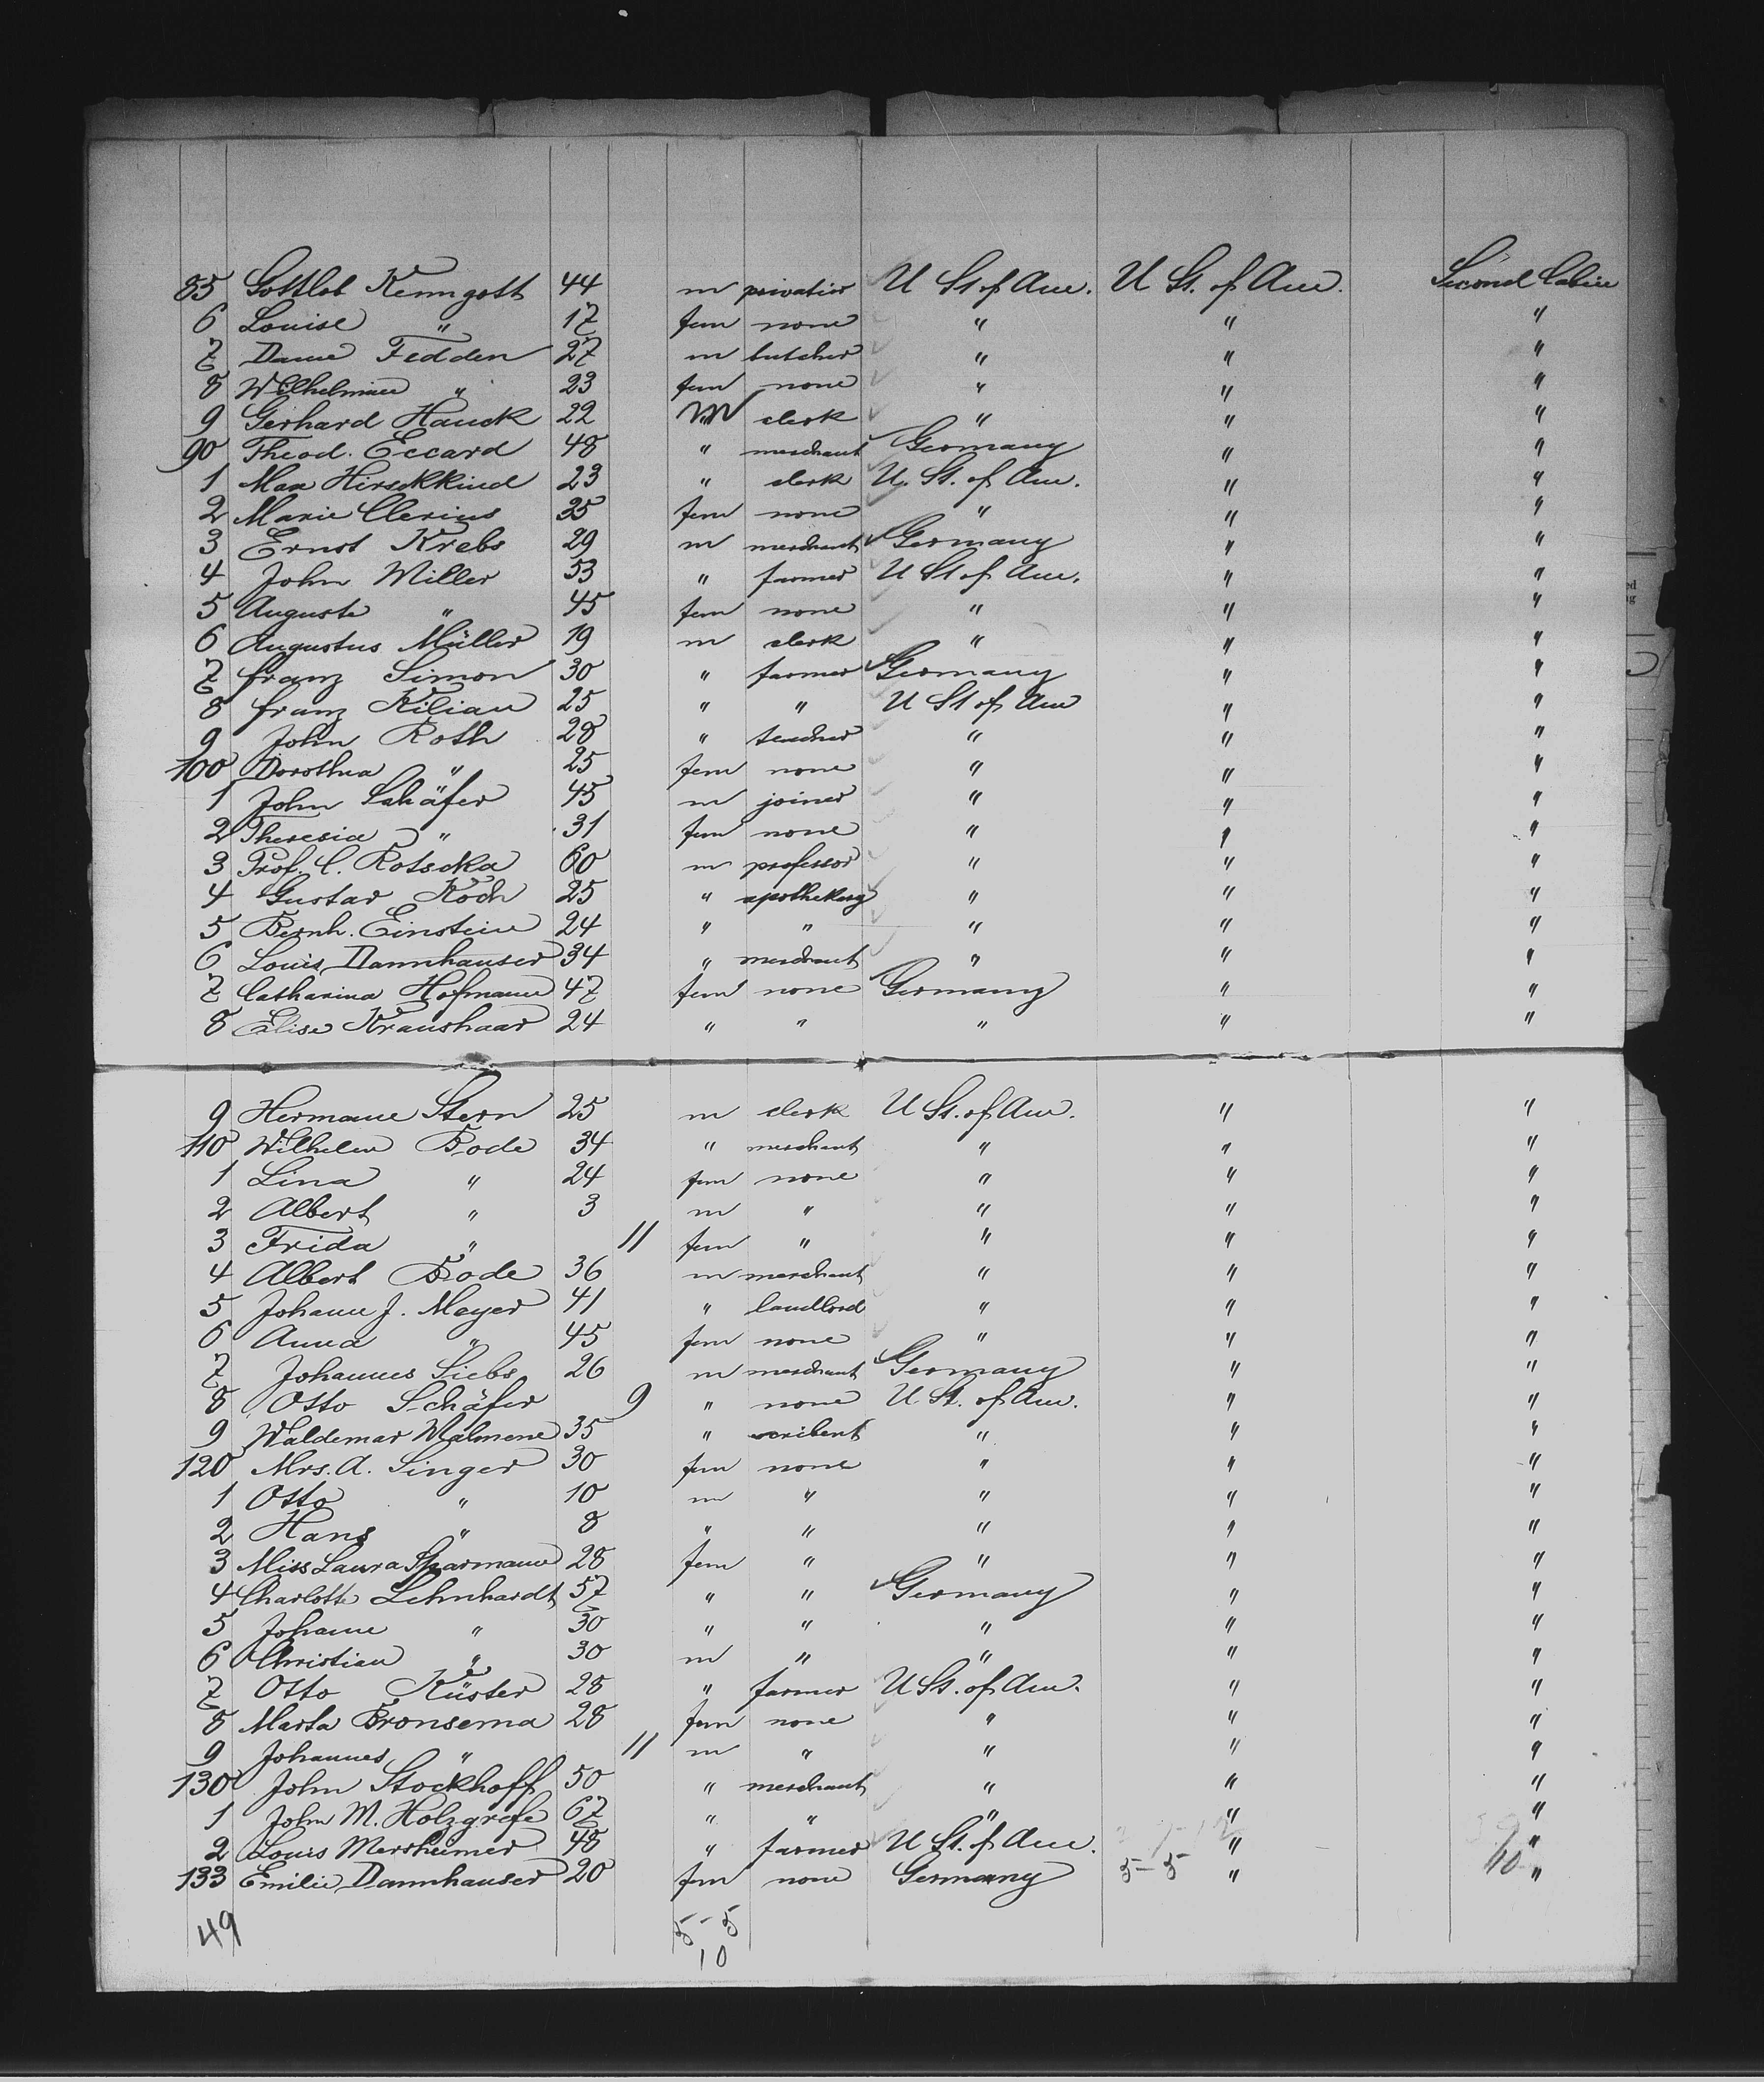 85 Gottlob Kenngott 44 m privatier U St of Am. U St. of Am. Second Cabin
6 Louise " 17 fem none " " "
7 Dame Fedden 27 m butcher " " "
8 Wilhelmine " 23 fem none " " "
9 Gerhard Hauck 22 m clerk " " "
90 Theod. Eccard 48 " merchant Germany " "
1 Max Hirschkind 23 " clerk U. St. of Am. " "
2 Marie Clerius 35 fem none " " "
3 Ernst Krebs 29 m merchant Germany " "
4 John Miller 53 " farmer U St of Am. " "
5 Auguste " 45 fem none " " "
6 Augustus Müller 19 m clerk " " "
7 Franz Simon 30 " farmer Germany " "
8 Franz Kilian 25 " " U St of Am " "
9 John Roth 28 " teacher " " "
100 Dorothea " 25 fem none " " "
1 John Schäfer 45 m joiner " " "
2 Theresia " 31 fem none " " "
3 Prof. C. Rotscka 60 m professor " " "
4 Gustav Koch 25 " " " "
5 Bernh. Einstein 24 " " " " "
6 Louis Dannhauser 34 " merchant " " "
7 Catharina Hofmann 47 fem none Germany " "
8 Elise Kraushaar 24 " " " " "
9 Hermann Stern 25 m clerk U St. of Am. " "
110 Wilhelm Bode 34 " merchant " " "
1 Lina " 24 fem none " " "
2 Albert " 3 m " " " "
3 Frida " 11 fem " " " "
4 Albert Bode 36 m merchant " " "
5 Johann J. Meyer 41 " landlord " " "
6 Anna " 45 fem none " " "
7 Johannes Siebs 26 m merchant Germany " "
8 Otto Schäfer 9 " none U St. of Am. " "
9 Waldemar Malmene 35 " scribent " " "
120 Mrs. A. Singer 30 fem none " " "
1 Otto " 10 m " " " "
2 Hans " 8 " " " " "
3 Miss Laura Sparmann 28 fem " " " "
4 Charlotte Lehnhardt 57 " " Germany " "
5 Johanne " 30 " " " " "
6 Christian " 30 m " " " "
7 Otto Küster 28 " farmer U St. of Am. " "
8 Marta Bronsema 28 fem none " " "
9 Johannes " 11 m " " " "
130 John Stockhoff 50 " merchant " " "
1 John M. Holzgrefe 67 " " " " "
2 Louis Mersheimer 48 " farmer U St. of Am. " "
133 Emilie Dannhauser 20 fem none Germany 5-5 " 10 "
49 5-5
10